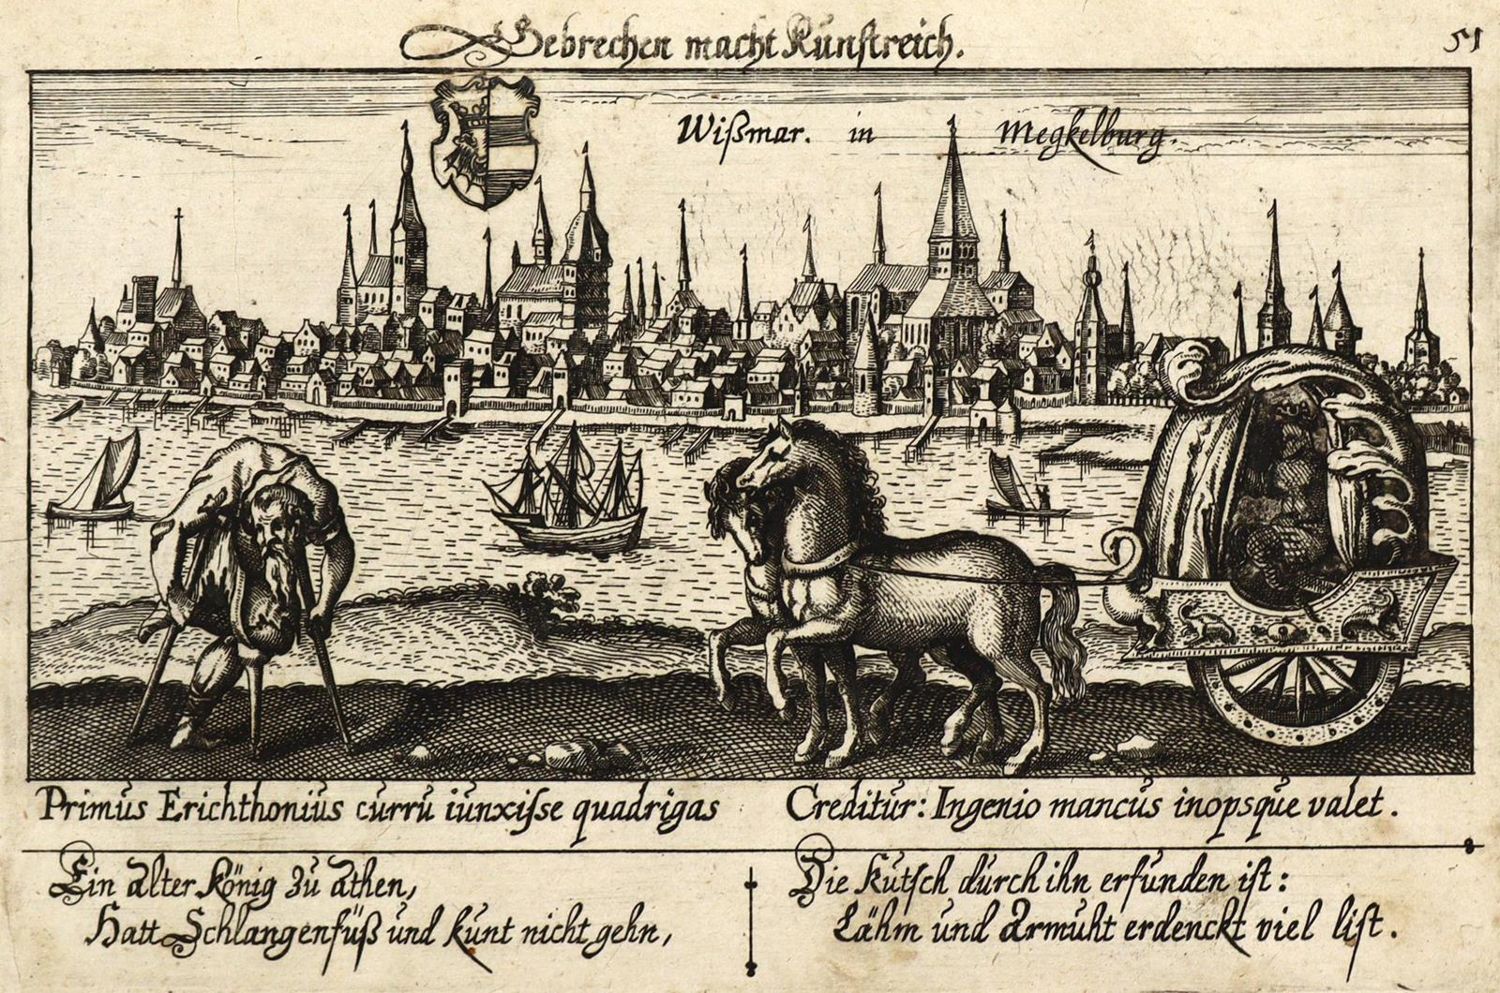 Gebrechen macht Kunstreich.
51
Wißmar. in Megkelburg.
Primus Erichthonius curru iunxisse quadrigas
Creditur: Ingenio mancus inopsque valet.
Ein alter König zu Athen,
Hatt Schlangenfüß und kunt nicht gehn,
Die Kutsch durch ihn erfunden ist:
Lähm und Armuht erdenckt viel list.